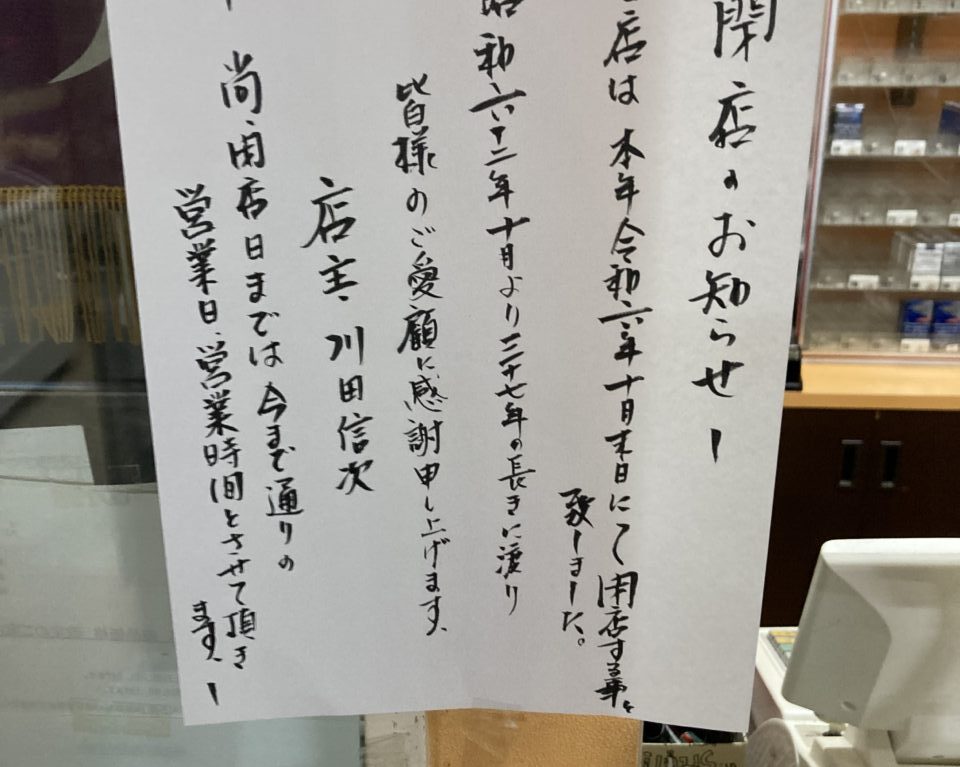 閉店のお知らせー
店は本年令和六年十月末日にて閉店する事と
致しました。
昭和六十二年十月より三十七年の長きに渡り
皆様のご愛顧に感謝申し上げます、
店主、川田信次
尚、閉店日までは今まで通りの
営業日、営業時間とさせて頂き
ます、ー